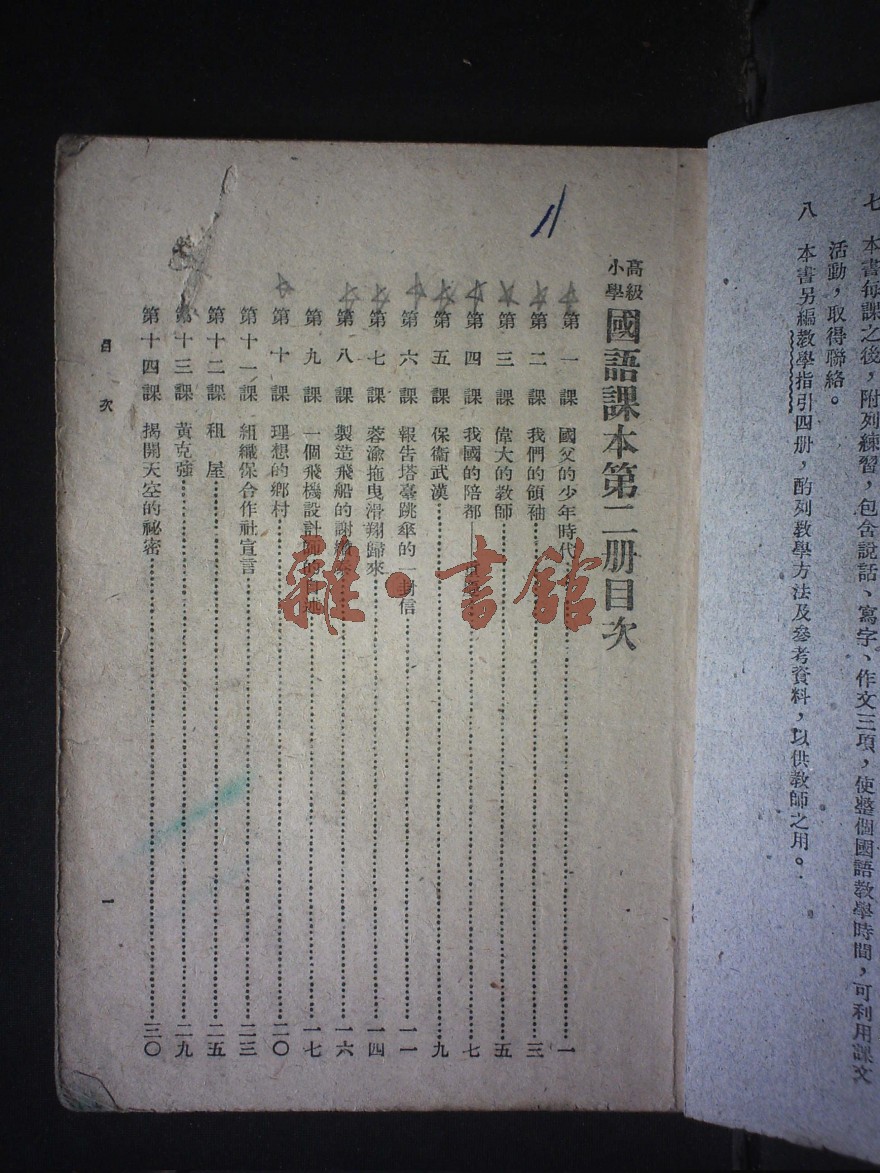 七　本書每課之後，附列練習，包含說話、寫字、作文三項，使整個國語教學時間，可利用課文
活動，取得聯絡。
八　本書另編教學指引四册，酌列教學方法及參考資料，以供教師之用。
高級
小學
國語課本第二册目次
第一課　國父的少年時代……一
第二課　我們的領袖……三
第三課　偉大的教師……五
第四課　我國的陪都……七
第五課　保衞武漢……九
第六課　報告塔臺跳傘的一封信……一一
第七課　蓉渝拖曳滑翔歸來……一四
第八課　製造飛船的謝……一六
第九課　一個飛機設計師的……一七
第十課　理想的鄉村……二〇
第十一課　組織保合作社宣言……二三
第十二課　租屋……二五
第十三課　黃克強……二九
第十四課　揭開天空的祕密……三〇
目次
一
雜·書館